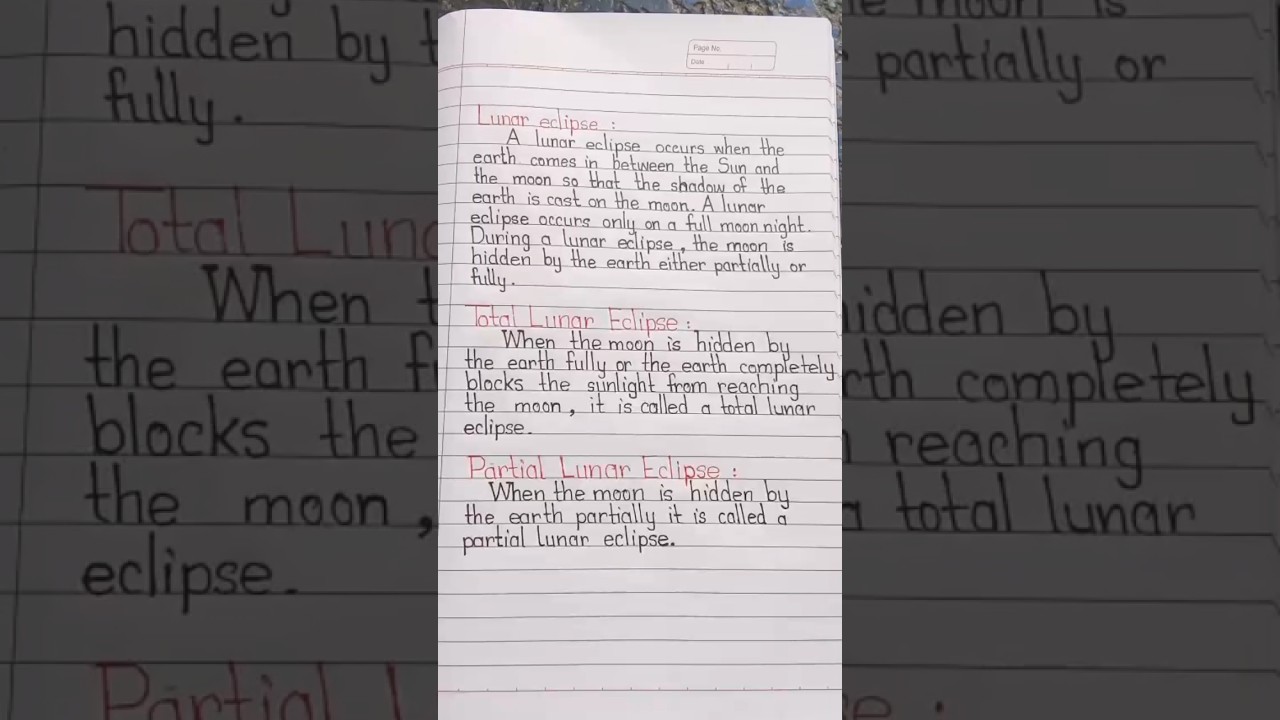 Page No.
Date
Lunar eclipse :
A lunar eclipse occurs when the
earth comes in between the Sun and
the moon so that the shadow of the
earth is cast on the moon. A lunar
eclipse occurs only on a full moon night.
During a lunar eclipse, the moon is
hidden by the earth either partially or
fully.
Total Lunar Eclipse :
When the moon is hidden by
the earth fully or the earth completely
blocks the sunlight from reaching
the moon, it is called a total lunar
eclipse.
Partial Lunar Eclipse :
When the moon is hidden by
the earth partially it is called a
partial lunar eclipse.